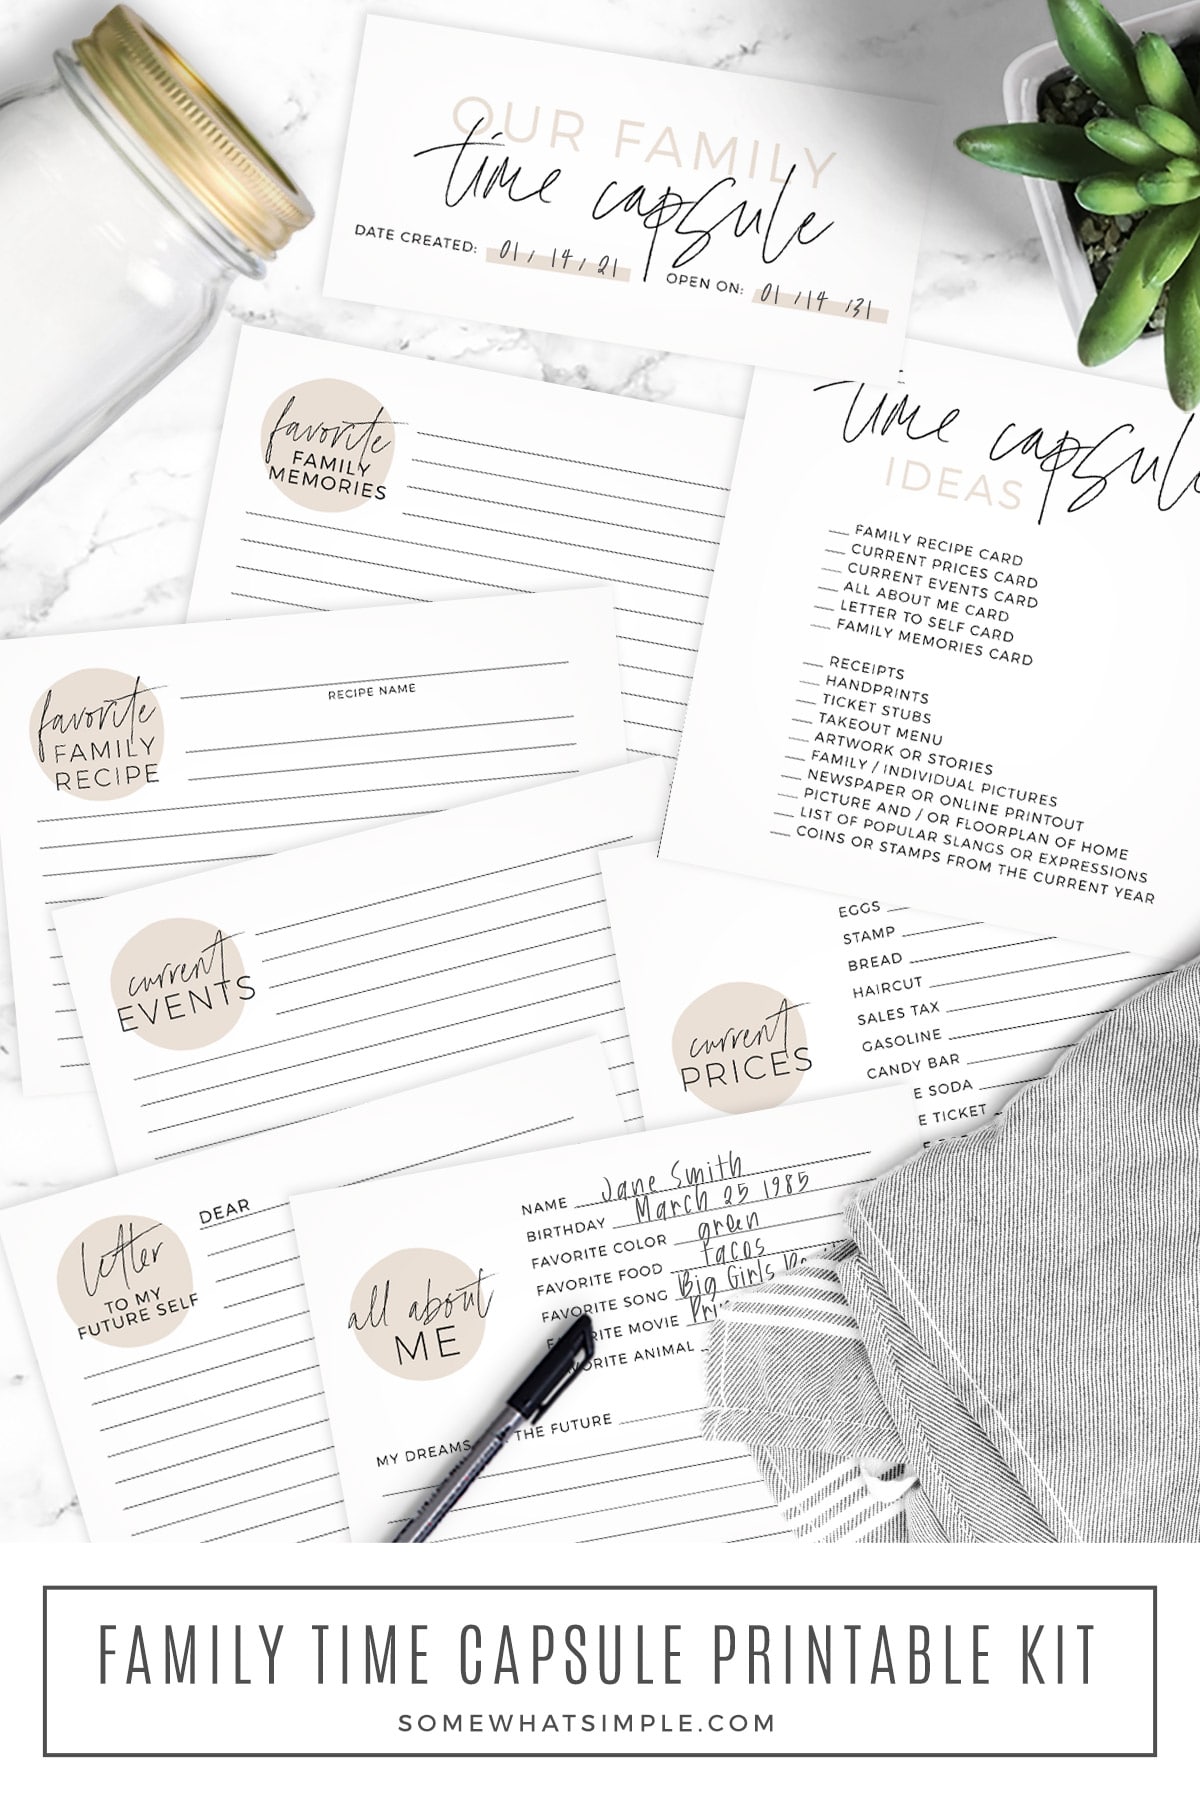 OUR FAMILY
time capsule
DATE CREATED: 01 / 14 / 21
OPEN ON: 01 / 14 / 31
favorite
FAMILY
MEMORIES
time capsule
IDEAS
FAMILY RECIPE CARD
CURRENT PRICES CARD
CURRENT EVENTS CARD
ALL ABOUT ME CARD
LETTER TO SELF CARD
FAMILY MEMORIES CARD
RECEIPTS
HANDPRINTS
TICKET STUBS
TAKEOUT MENU
ARTWORK OR STORIES
FAMILY / INDIVIDUAL PICTURES
NEWSPAPER OR ONLINE PRINTOUT
PICTURE AND / OR FLOORPLAN OF HOME
LIST OF POPULAR SLANGS OR EXPRESSIONS
COINS OR STAMPS FROM THE CURRENT YEAR
favorite
FAMILY
RECIPE
RECIPE NAME
current
EVENTS
current
PRICES
EGGS
STAMP
BREAD
HAIRCUT
SALES TAX
GASOLINE
CANDY BAR
E SODA
E TICKET
letter
TO MY
FUTURE SELF
DEAR
all about
ME
NAME Jane Smith
BIRTHDAY March 25 1985
FAVORITE COLOR green
FAVORITE FOOD tacos
FAVORITE SONG Big Girls
RITE MOVIE Pri
ORITE ANIMAL
MY DREAMS THE FUTURE
FAMILY TIME CAPSULE PRINTABLE KIT
SOMEWHATSIMPLE.COM